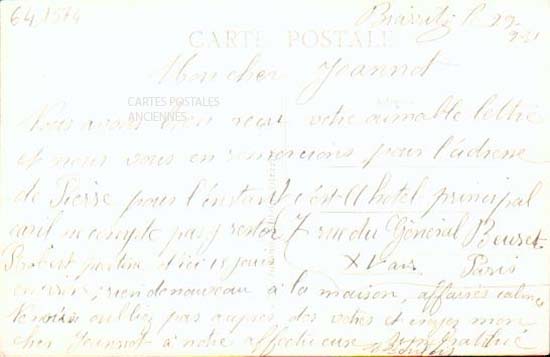 64 1574
Biarritz le 29
CARTE POSTALE
Mon cher Jeannot
CARTES POSTALES
ANCIENNES
Nous avons bien reçu votre aimable lettre
et nous vous en remercions pour l'adresse
de Pierre pour l'instant c'est l'hotel principal
car il ne compte pas y rester 7 rue du Général Beuret
Robert partira d'ici 15 jours XV arr Paris
environ; rien de nouveau à la maison, affaires calmes
oubliez pas auprès des votres et croyez mon
cher Jeannot à notre affectueux